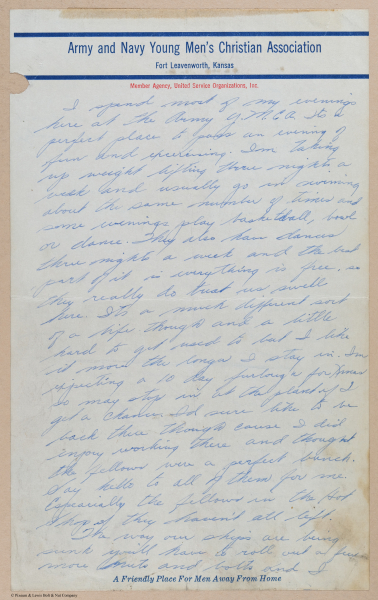 Army and Navy Young Men's Christian Association
Fort Leavenworth, Kansas
Member Agency, United Service Organizations, Inc.
I spend most of my evenings
here at the Army Y.M.C.A. Its a
perfect place to pass an evening of
fun and exercising. I'm taking
up weight lifting three nights a
week and usually go in swimming
about the same number of times and
some evenings play basketball, bowl
or dance. They also have dances
three nights a week and the best
part of it is everything is free, so
they really do treat us swell
here. Its a much different sort
of a life though and a little
hard to get used to but I like
it more the longer I stay in. I'm
expecting a 10 day furlough for Xmas
so may stop in at the plant if I
get a chance. I'd sure like to be
back there though cause I did
enjoy working there and thought
the fellows were a perfect bunch.
Say hello to all of them for me.
Especially the fellows in the
Shop if they haven't all left.
The way our ships are being
sunk you'll have to roll out a few
more nuts and bolts and I
A Friendly Place For Men Away From Home
© Pioneer & Lewis Bolt & Nut Company